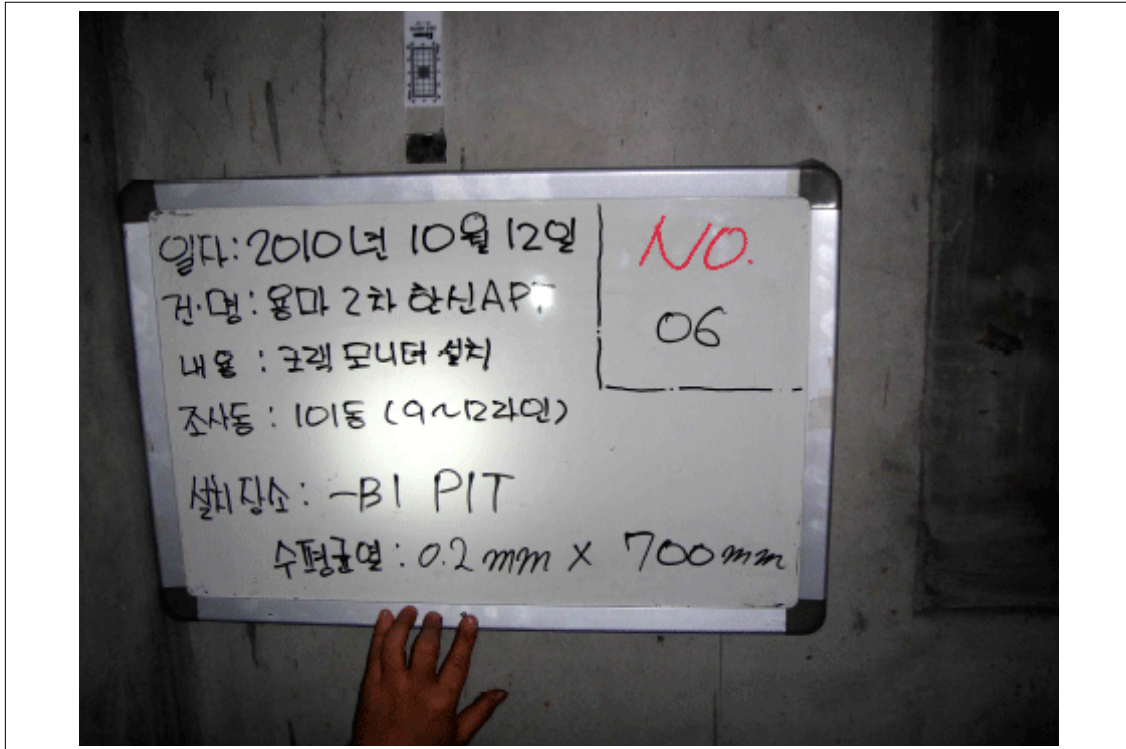 일자: 2010년 10월 12일
건·명: 용마 2차 한신APT
내용 : 크랙 모니터 설치
조사동 : 101동 (9~12라인)
설치장소 : -B1 PIT
수평균열 : 0.2mm × 700mm
NO.
06